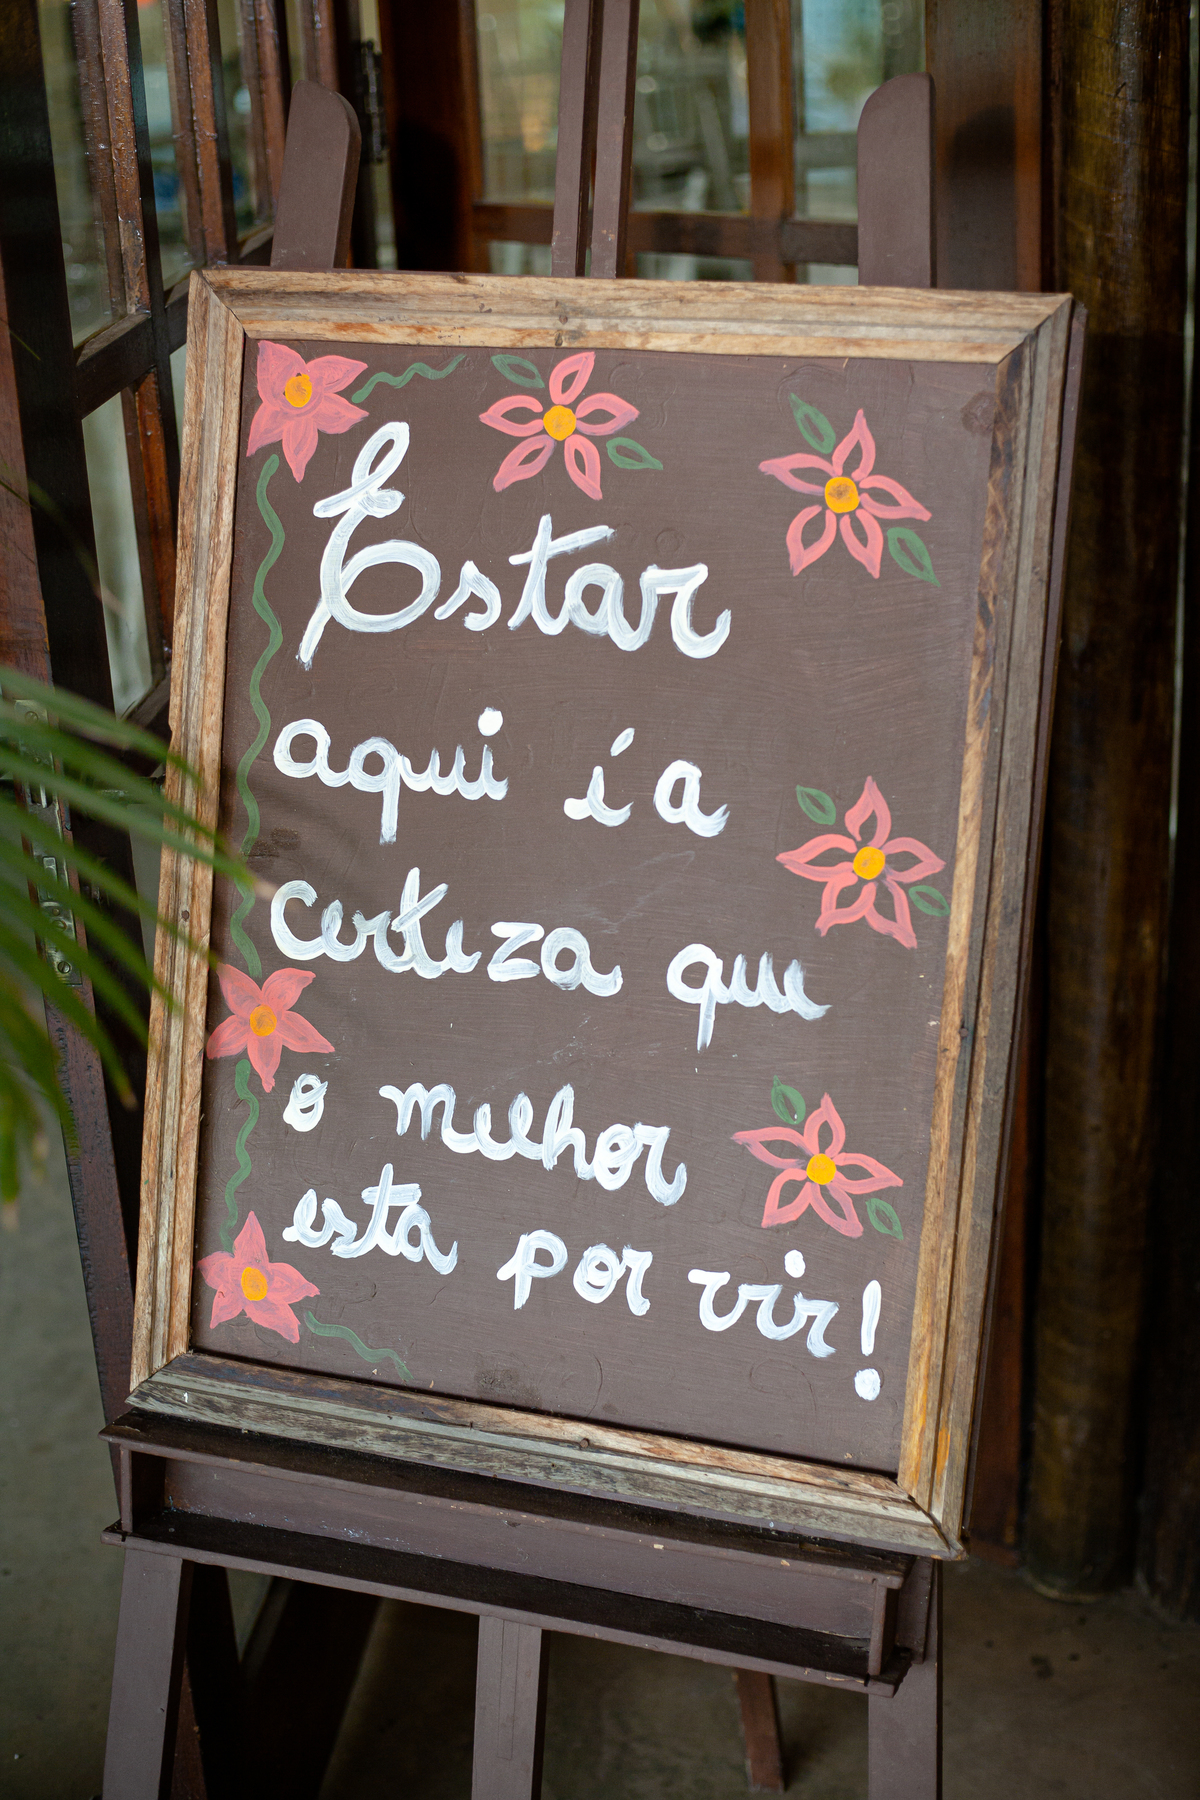 Estar
aqui é a
certeza que
o melhor
esta por vir!